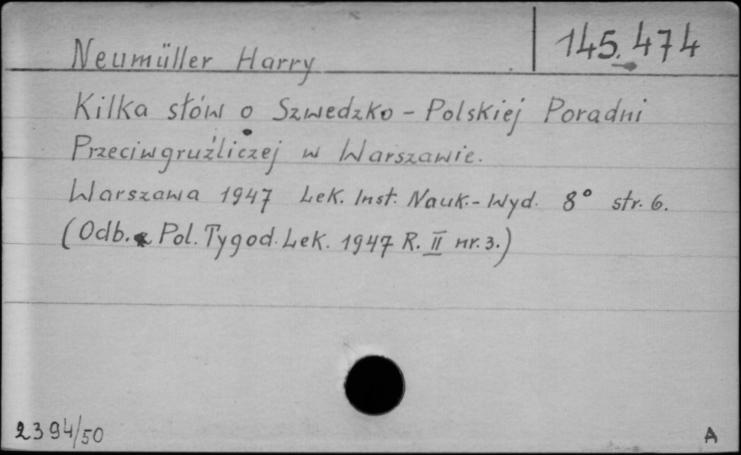 Neumüller Harry
145.474
Kilka słów o Szwedzko - Polskiej Poradni
Przeciwgruźliczej w Warszawie.
Warszawa 1947 Lek. Inst. Nauk.- Wyd. 8° str. 6.
(Odb. Pol. Tygod. Lek. 1947 R. II nr. 3.)
2394/50
A